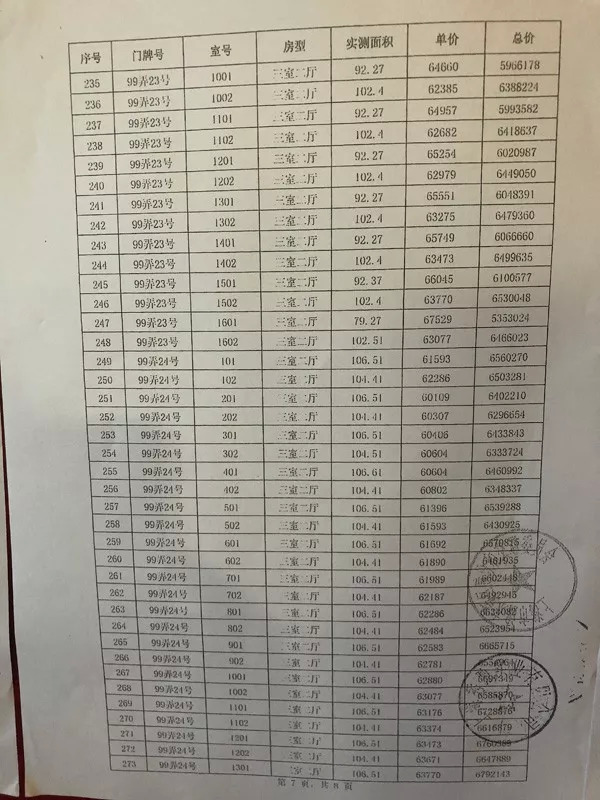 序号 门牌号 室号 房型 实测面积 单价 总价
235 99弄23号 1001 三室二厅 92.27 64660 5966178
236 99弄23号 1002 三室二厅 102.4 62385 6388224
237 99弄23号 1101 三室二厅 92.27 64957 5993582
238 99弄23号 1102 三室二厅 102.4 62682 6418637
239 99弄23号 1201 三室二厅 92.27 65254 6020987
240 99弄23号 1202 三室二厅 102.4 62979 6449050
241 99弄23号 1301 三室二厅 92.27 65551 6048391
242 99弄23号 1302 三室二厅 102.4 63275 6479360
243 99弄23号 1401 三室二厅 92.27 65749 6066660
244 99弄23号 1402 三室二厅 102.4 63473 6499635
245 99弄23号 1501 三室二厅 92.37 66045 6100577
246 99弄23号 1502 三室二厅 102.4 63770 6530048
247 99弄23号 1601 三室二厅 79.27 67529 5353024
248 99弄23号 1602 三室二厅 102.51 63077 6466023
249 99弄24号 101 三室二厅 106.51 61593 6560270
250 99弄24号 102 三室二厅 104.41 62286 6503281
251 99弄24号 201 三室二厅 106.51 60109 6402210
252 99弄24号 202 三室二厅 104.41 60307 6296654
253 99弄24号 301 三室二厅 106.51 60406 6433843
254 99弄24号 302 三室二厅 104.41 60604 6333724
255 99弄24号 401 三室二厅 106.61 60604 6460992
256 99弄24号 402 三室二厅 104.41 60802 6348337
257 99弄24号 501 三室二厅 106.51 61396 6539288
258 99弄24号 502 三室二厅 104.41 61593 6430925
259 99弄24号 601 三室二厅 106.51 61692 6570815
260 99弄24号 602 三室二厅 104.41 61890 6461935
261 99弄24号 701 三室二厅 106.51 61989 6602448
262 99弄24号 702 三室二厅 104.41 62187 6492945
263 99弄24号 801 三室二厅 106.51 62286 6634082
264 99弄24号 802 三室二厅 104.41 62484 6523954
265 99弄24号 901 三室二厅 106.51 62583 6665715
266 99弄24号 902 三室二厅 104.41 62781
267 99弄24号 1001 三室二厅 106.51 62880 6697349
268 99弄24号 1002 三室二厅 104.41 63077 6585870
269 99弄24号 1101 三室二厅 106.51 63176 6728876
270 99弄24号 1102 三室二厅 104.41 63374 6616879
271 99弄24号 1201 三室二厅 106.51 63473 6760509
272 99弄24号 1202 三室二厅 104.41 63671 6647889
273 99弄24号 1301 三室二厅 106.51 63770 6792143
第 7 页, 共 8 页